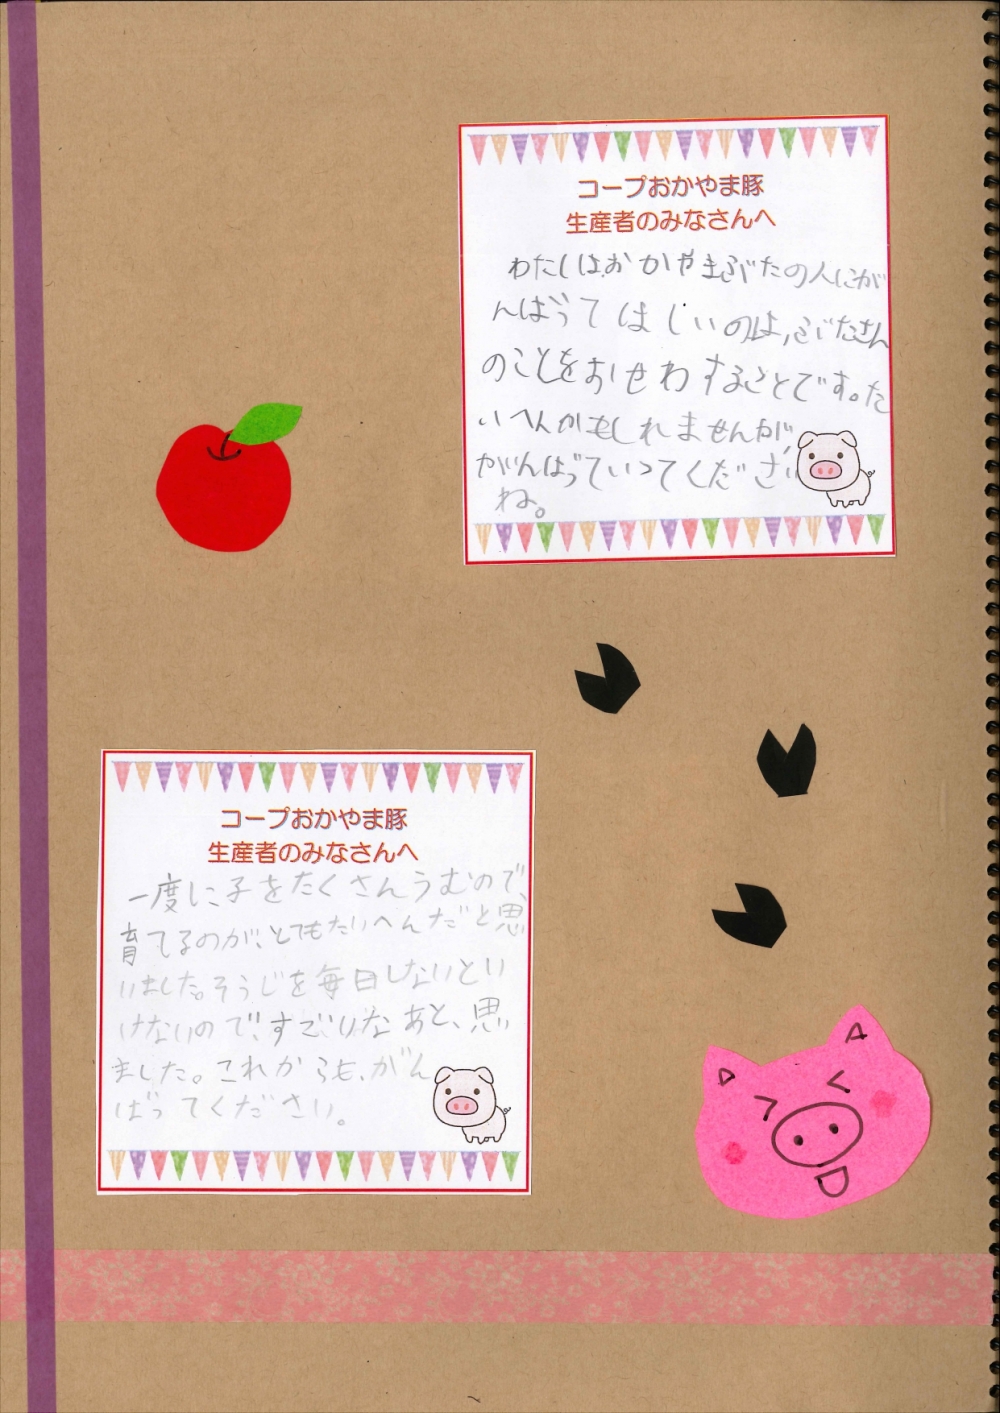 コープおかやま豚
生産者のみなさんへ
わたしはおかやまぶたの人にが
んばってほしいのは,ぶたさん
のことをおせわすることです。た
いへんかもしれませんが,
がんばっていってくださいね。
コープおかやま豚
生産者のみなさんへ
一度に子をたくさんうむので、
育てるのが、とてもたいへんだと思
いました。そうじを毎日しないとい
けないので、すごいなあと、思い
ました。これからも、がん
ばってください。